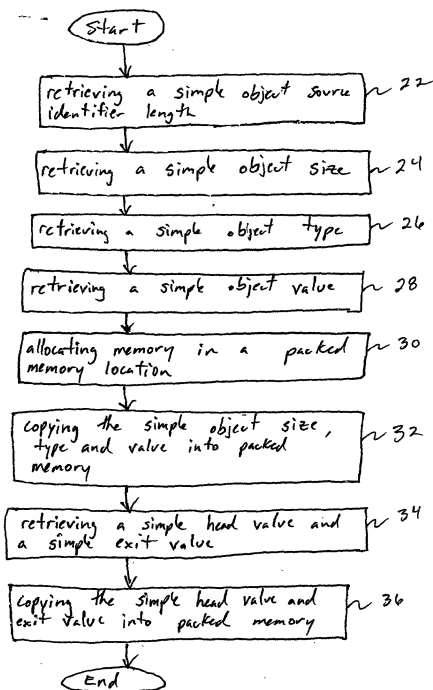 Start
retrieving a simple object source
identifier length
22
retrieving a simple object size
24
retrieving a simple object type
26
retrieving a simple object value
28
allocating memory in a packed
memory location
30
copying the simple object size,
type and value into packed
memory
32
retrieving a simple head value and
a simple exit value
34
copying the simple head value and
exit value into packed memory
36
End